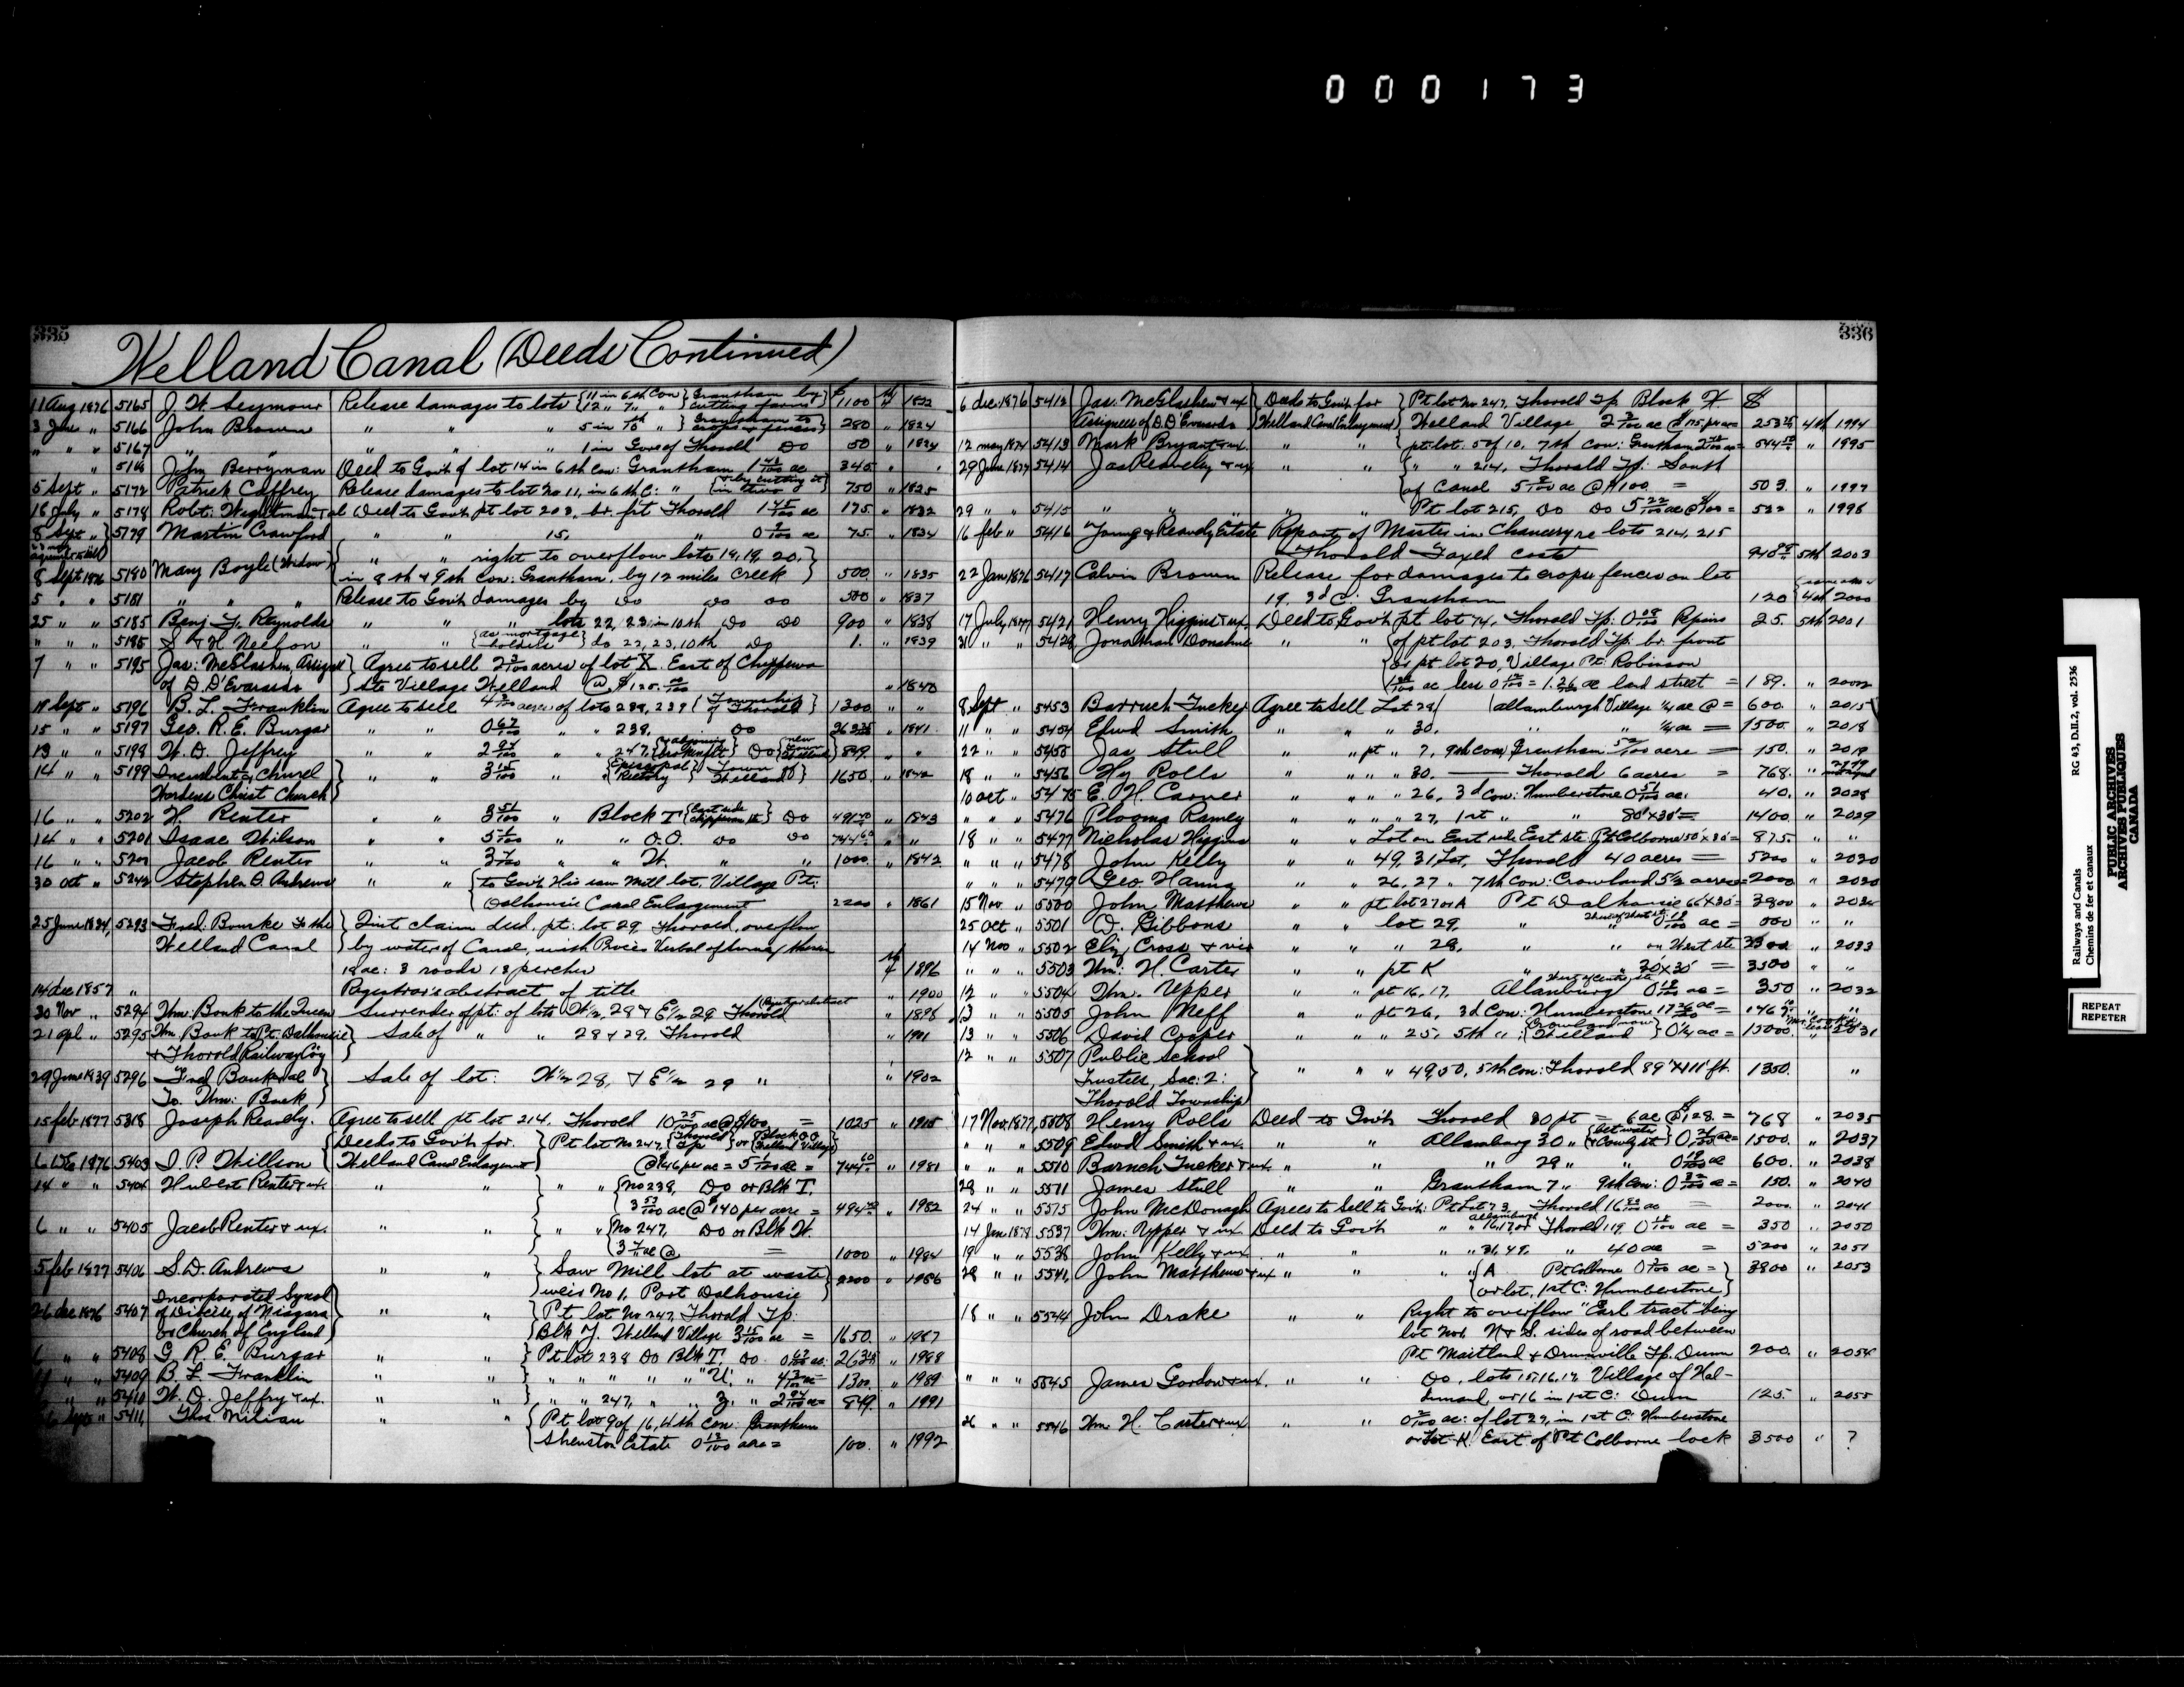 000173
335
Welland Canal (Deeds Continued)
11 Aug 1876 5165 J. W. Seymour Release damages to lots {11 in 6th Con} Grantham by 1100 1822
12 " 7 " " cutting farm
3 June " 5166 John Brown " " " 5 in 10th " Grantham to crops & fences 280 " 1824
" " " 5167 " " " " 1 in Gore of Thorold Do 50 " 1824
" John Berryman Deed to Govt of lot 14 in 6th Con: Grantham 1 ac 345
5 Sept " 5172 Patrick Caffrey Release damages to lot No 11, in 6th C: " {& by cutting it in two} 750 " 1825
16 July " 5178 Robt. Wightman Deed to Govt. pt lot 203, br. frt Thorold 1 45/100 ac 175. " 1832
8 Sept " 5179 Martin Crawford " " 15, " 0 ac 75. " 1834
8 Sept 1876 5180 Mary Boyle (Widow) " " right to overflow lots 14, 19, 20,
in 8th & 9th Con: Grantham, by 12 miles Creek 500. " 1835
5 " " 5181 " " " Release to Govt. damages by do do do 500 " 1837
25 " " 5185 Benj. F. Reynolds " " " lots 22, 23, in 10th do do 900 " 1838
" " " S & H Neelon " " {as mortgage holders} do 22, 23, 10th Do 1. " 1839
7 " " 5195 Jas: McGlashen, Agree to sell acres of lot X. East of Chippewa
of D. D'Everardo Ste Village Welland @ $125. " 1840
5196 B. L. Franklin Agree to sell acres of lots 238, 239 {Township of Thorold} 1300 " "
15 " " 5197 Geo. R. E. Burgar " " 0 67/100 " " 239, Do " 1841
13 " " W. D. Jeffry " " " " 247, Do 849. "
14 " " 5199 Incumbent & Church " " 3 15/100 " " {Episcopal Rectory} Town Welland 1650. " 1842
Wardens Christ Church
16 " " 5202 H. Renter " " 3 " Block T {East side Chippewa St} Do " 1843
14 " " 5201 Isaac Wilson " " 5 " " O.O. do do 744 60 " "
16 " " Jacob Renter " " 3 " " W. " " 1000. " 1842
30 Oct " 5242 Stephen D. Andrews " " {to Govt. His saw Mill lot, Village Pt:
Dalhousie Canal Enlargement 2200 " 1861
5293 Fred. Bourke to the Quit claim deed, pt: lot 29, Thorold, overflow
Welland Canal by water of Canal, with Procès Verbal of
ac: 3 roods 13 perches 1896
14 Dec 1857 " Registrar's abstract of title " 1900
30 Nov " 5294 Thm: Bouk to the Queen Surrender of pt: of lots W½, 28 & E½ 29 Thorold " 1896
21 Apl " 5295 Thm Bouk to Pt. Dalhousie Sale of " " 28 & 29, Thorold " 1901
& Thorold Railway Coy
29 June 1839 5296 Fred Bouk Sale of lot: W½ 28, & E½ 29 " " 1902
To. Thm: Bouk
15 Feb 1877 5318 Joseph Reavly. Agree to sell pt lot 214. Thorold 10 25/100 ac @ $100. = 1025 "
Deeds to Govt. for. Pt lot No 247, {Thorold Tp} or {Block O.O Welland Village}
1876 5403 I. P. Willson Welland Canal Enlargement @ $146 per ac = 5 ac = 744 60 " 1981
14 " " 5404 Hubert Renter & ux. " " " " {No 239, Do or Blk T.
3 53/100 ac @ $140 per acre = " 1982
6 " " 5405 Jacob Renter & ux. " " " " {No 247, Do or Blk W.
ac @ = 1000 " 1984
5 Feb 1877 5406 S. D. Andrews " " Saw Mill lot at waste 2200 " 1986
weir No 1, Port Dalhousie
26 Dec 1876 5407 Incorporated Synod
of Diocese of Niagara " " Pt lot No 247, Thorold Tp.
or Church of England Blk Y. Welland Village 3 15/100 ac = 1650. " 1987
" " 5408 G. R. E. Burgar " " Pt lot 238 Do Blk T. Do. 0 67/100 ac. " 1988
" " 5409 B. L. Franklin " " " " " " " "U". " ac = 1300. " 1989
" " 5410 W. D. Jeffry & ux. " " " " 247, " " Z. " ac = 849. " 1991
" 5411, Thos Milian " " Pt lot 9 of 16, 4th Con: Grantham
Shenston Estate 0 13/100 acre = 100. " 1992
336
6 Dec. 1876 5412 Jas. McGlashen & ux Deeds to Govt. for Pt lot No 247, Thorold Tp Block X. $
Assignees of D. D'Everardo Welland Canal Enlargement Welland Village ac 4th 1994
12 May 1874 5413 Mark Bryant & ux. " " pt lot: 5 of 10, 7th Con: Grantham " 1995
29 June 1877 5414 Jas Reaveley & ux " " " " 214, Thorold Tp: South
of Canal 5 ac @ $100 = 503. " 1997
29 " " 5415 " " " " " Pt lot 215, Do Do 5 22/100 ac @ $100 = 522 " 1998
16 Feb " 5416 Young & Reavely Estate Report of Master in Chancery re lots 214, 215
Thorold Taxed costs 5th 2003
22 Jan 1876 5417 Calvin Brown Release for damages to crops & fences on lot
19, 3d C: Grantham 120 4th 2000
17 July 1877 5421 Henry Higgins & ux Deed to Govt. pt lot 74, Thorold Tp: 0 08/100 25. 5th 2001
31 " " 5428 Jonathan Donohue " " of pt lot 203, Thorold Tp. br. front
or pt lot 20, Village Pt. Robinson
ac less 0 = 1.26 ac land street = 189. " 2002
8 Sept " 5453 Barruch Tucker Agree to Sell Lot 29/ (Allanburgh Village ¼ ac @ = 600. " 2015
11 " " 5454 Edwd Smith " " " 30, " " ¼ ac = 1500. " 2018
22 " " 5455 Jas Stull " " pt " 7, 9th Con, Grantham acre = 150. " 2019
18 " " 5456 Hy Rolls " " " " 30. — Thorold 6 acres = 768. "
10 Oct " 5475 E. H. Carver " " " " 26, 3d Con: Humberstone 0 51/100 ac. 40. " 2028
" " " 5476 Plooma Ramey " " " " 27, 1st " " 80'x30' = 1400. " 2029
18 " " 5477 Nicholas Higgins " " Lot on East side East ste. Pt Colborne 50'x30' = 875. " "
" " " 5478 John Kelly " " " 49, 31 Lot, Thorold 40 acres = 5200 " 2030
" " " 5479 Geo. Hanna " " " 26, 27 " 7th Con: Crowland 5½ acres = 2000 " 2030
15 Nov. " 5500 John Matthews " " pt lot 27 or A Pt Dalhousie 66'x30' = 3800 "
25 Oct " 5501 D. Gibbons " " lot 29, " ac = " "
14 Nov " 5502 Eliz Cross & " " " 28, " " on West ste 3300 " 2033
" " " 5503 Wm: H. Carter " " pt K " " 30'x30' = 3500 " "
12 " " 5504 Thm. Upper " " pt 16, 17. Allanburg 0 18/100 ac = 350 " 2032
13 " " 5505 John Neff " " pt 26, 3d Con: Humberstone " "
13 " " 5506 David Cooper " " " 25, 5th " {Crowland now Welland} 0¼ ac = 15000. " 2031
12 " " 5507 Public School
Trustees, Sec: 2: " " " 49, 50, 5th Con: Thorold 89'x111' ft. 1350. "
Thorold Township
17 Nov. 1877, 5508 Henry Rolls Deed to Govt. Thorold 30 pt = 6 ac @ $128 = 768 " 2035
" " " 5509 Edwd Smith & ux. " " Allanburg 30 " ac = 1500. " 2037
" " " 5510 Baruch Tucker & ux. " " " 29 " " 0 19/100 ac 600. " 2038
28 " " 5511 James Stull " " Grantham 7 " 9th Con: 0 ac = 150. " 2040
24 " " John McDonagh Agrees to Sell to Govt. Pt Lot 23, Thorold 16 ac = 2000. " 2041
14 Jan 1878 5537 Thm: Upper & ux. Deed to Govt. " " 16, 17 or Thorold 119, 0 18/100 ac = 350 " 2050
19 " " 5538 John Kelly & ux. " " " " 31, 49, " 40 ac = 5200 " 2051
28 " " 5541, John Matthews & ux " " " {A Pt Colborne 0 ac = 3800 " 2053
or lot, 1st C: Humberstone
18 " " 5544 John Drake " " Right to overflow "Earl tract" being
lot No 1, N & S. sides of road between
Pt Maitland & Dunnville Tp. Dunn 200. " 2054
" " " 5545 James Gordon & ux. " " Do, lots 15, 16, 17, Village of Hal-
dimand, or 16 in 1st C: Dunn 125. " 2055
26 " " 5546 Wm H. Carter & ux. " " ac: of lot 27, in 1st C: Humberstone
or lot K. East of Pt Colborne lock 3500 " ?
Railways and Canals
Chemins de fer et canaux
RG 43, D.II.2, vol. 2536
PUBLIC ARCHIVES
ARCHIVES PUBLIQUES
CANADA
REPEAT
REPETER